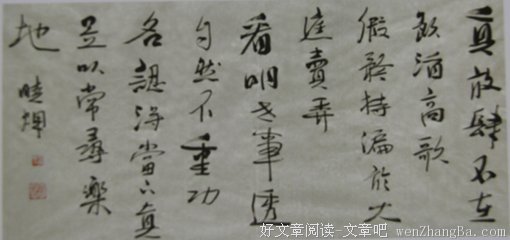 真放肆不在
飲酒高歌
假矜持偏於大
庭賣弄
看明世事透
自然不重功
名認得當下真
是以常尋樂
地
好文章阅读-文章吧
wenZhangBa.com